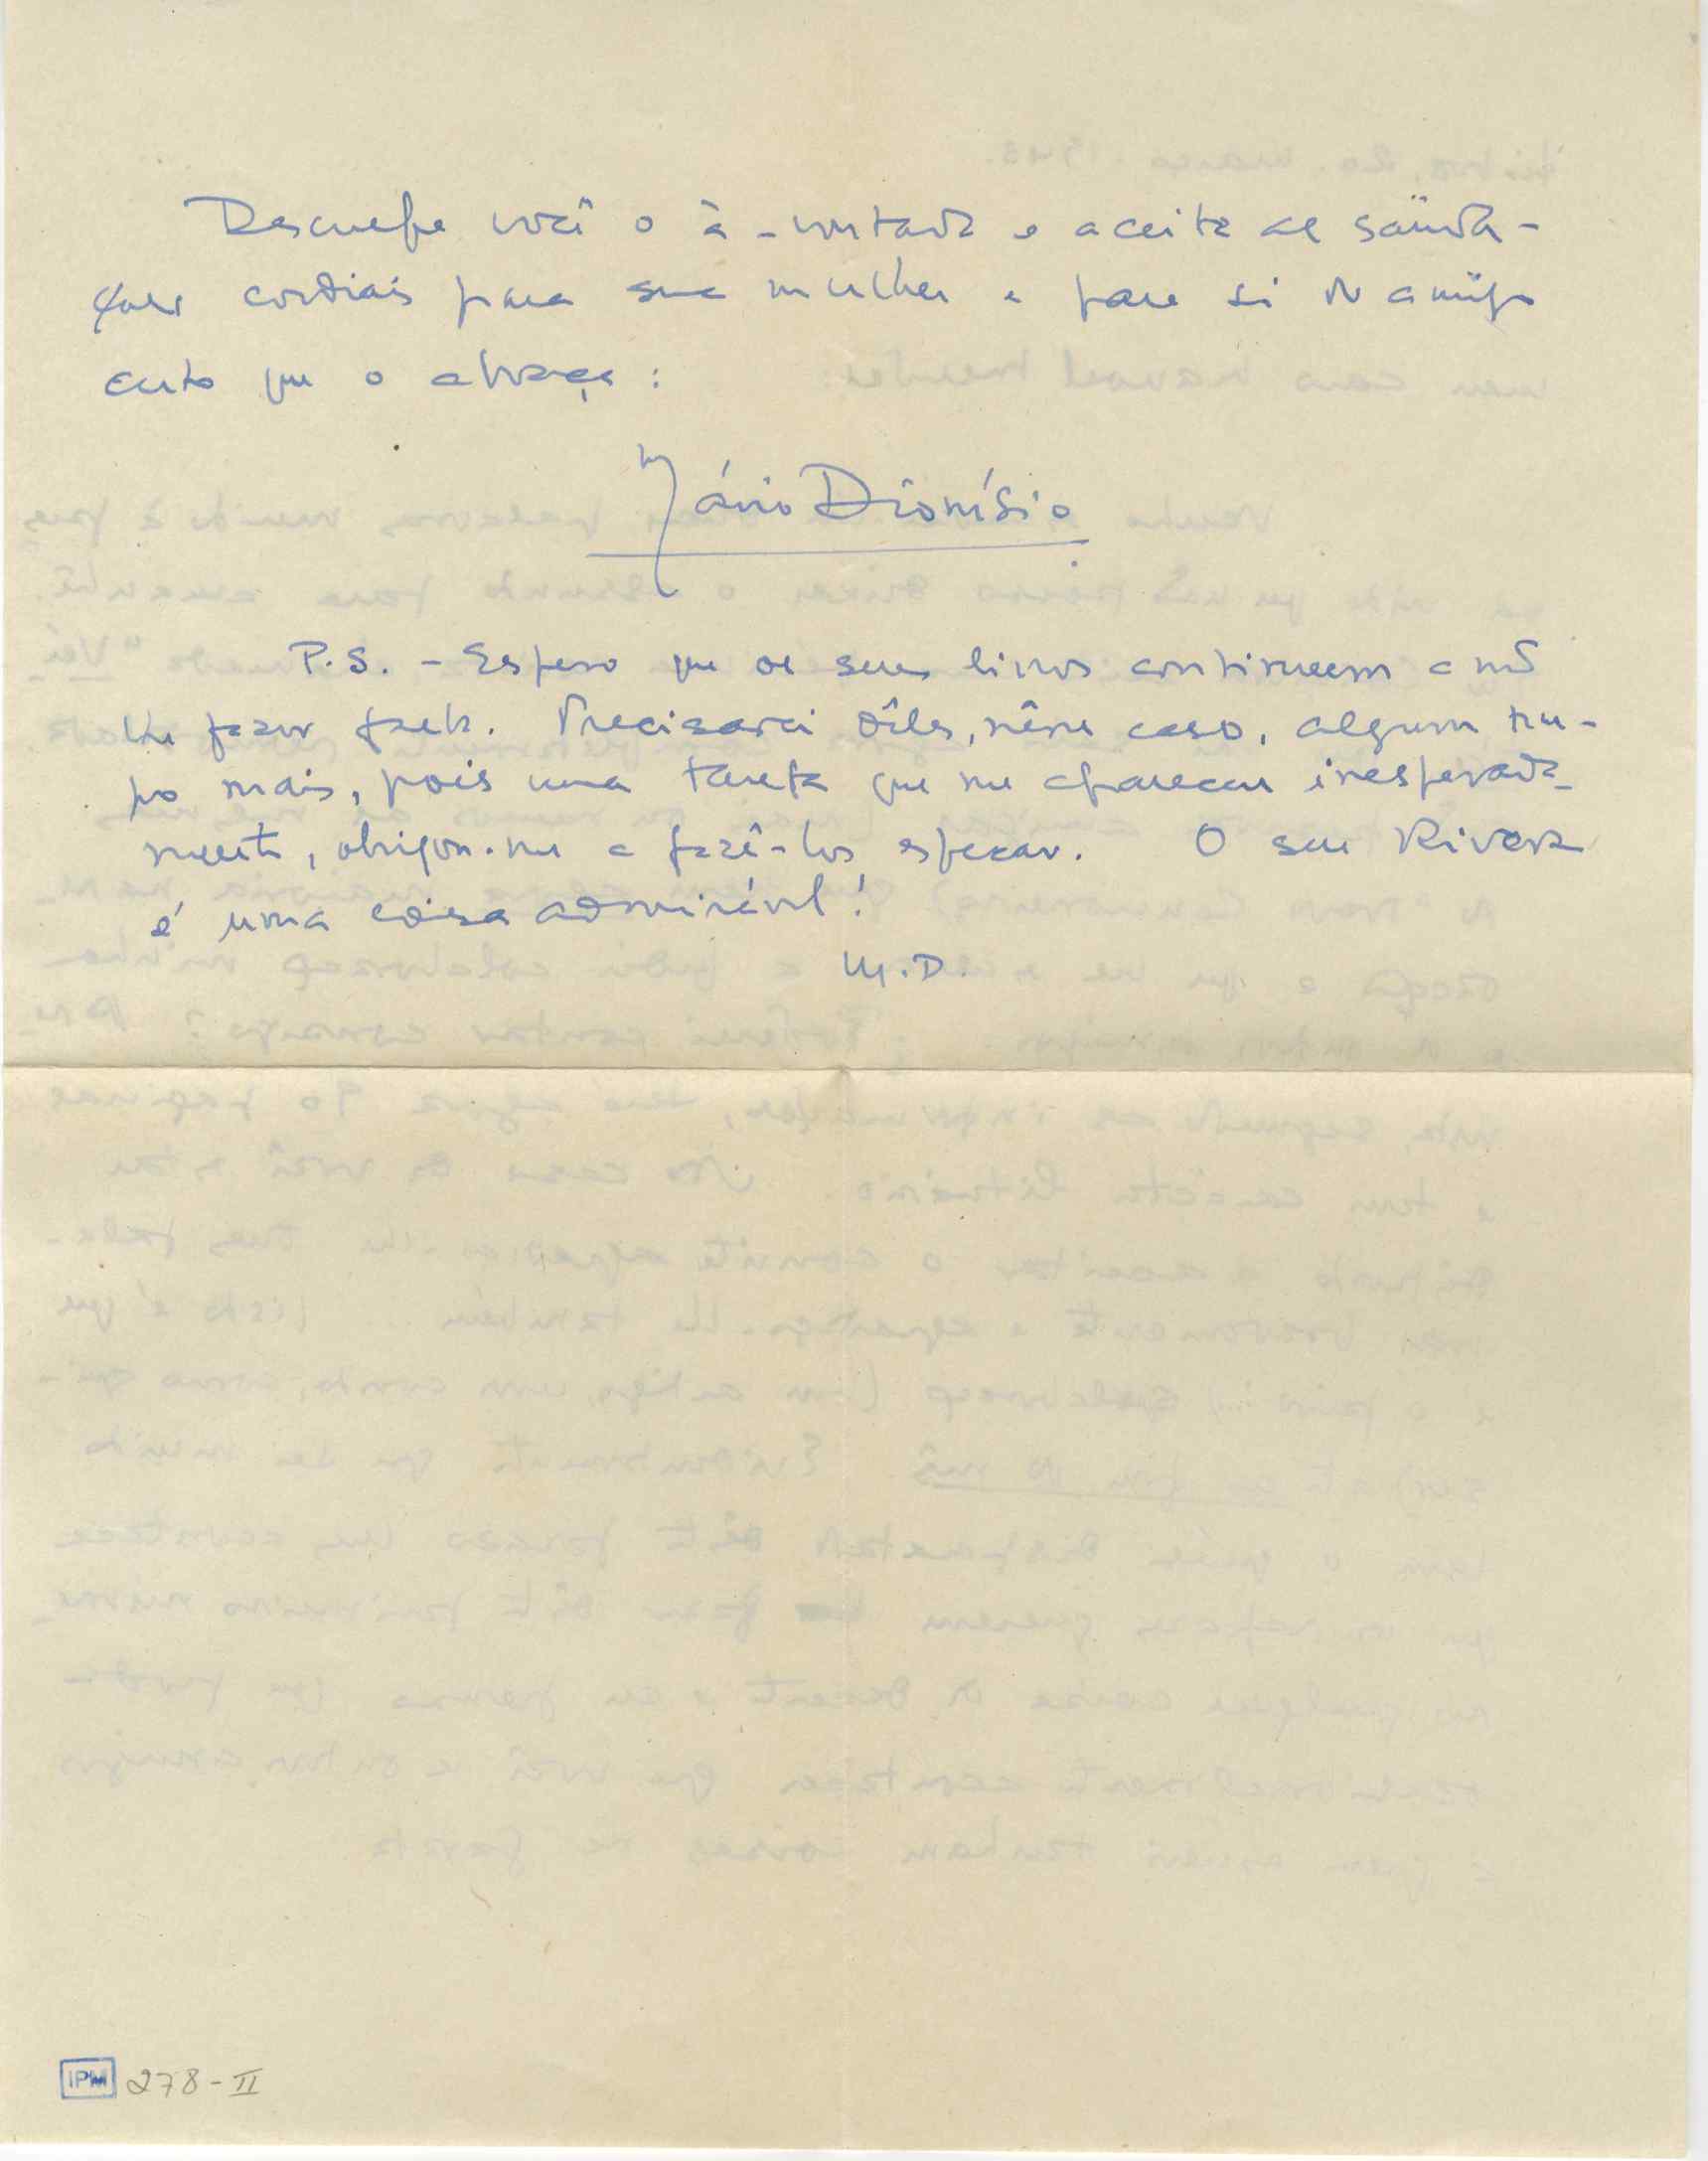 Desculpe você o à-vontade e aceite as saüda-
ções cordiais para sua mulher e para si do amigo
certo que o abraça:
Mário Dionísio
P.S. - Espero que os seus livros continuem a não
lhe fazer falta. Precisarei dêles, nêsse caso, algum tem-
po mais, pois uma tarefa que me apareceu inesperada-
mente, obrigou-me a fazê-los esperar. O seu Rivera
é uma coisa admirável!
M.D.
IPM 278-II